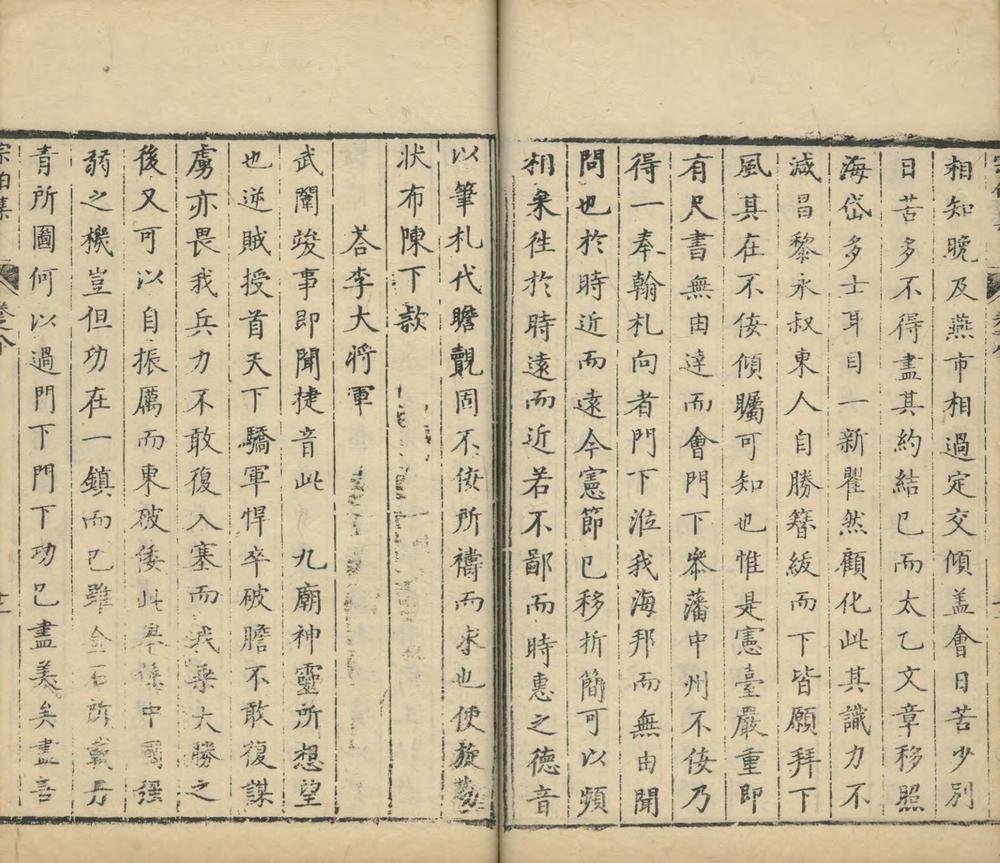 相知晚及燕市相過定交傾盖會日苦少別
日苦多不得盡其約結已而太乙文章移照
海岱多士耳目一新瞿然顧化此其識力不
減昌黎永叔東人自勝簪紱而下皆願拜下
風其在不佞傾矚可知也惟是憲臺嚴重即
有尺書無由達而會門下叅藩中州不佞乃
得一奉翰札向者門下涖我海邦而無由聞
問也於時近而遠今憲節已移折簡可以頻
相来徃於時遠而近若不鄙而時惠之德音
以筆札代瞻覿固不佞所禱而求也使旋勒
狀布陳下款
荅李大將軍
武闈竣事即聞捷音此 九廟神靈所想望
也逆賊授首天下驕軍悍卒破膽不敢復謀
虜亦畏我兵力不敢復入塞而我乘大勝之
後又可以自振厲而東破倭此舉係中國强
弱之機豈但功在一鎮而已雖金石所載丹
青所圖何以過門下門下功已盡美矣盡善
宗伯集